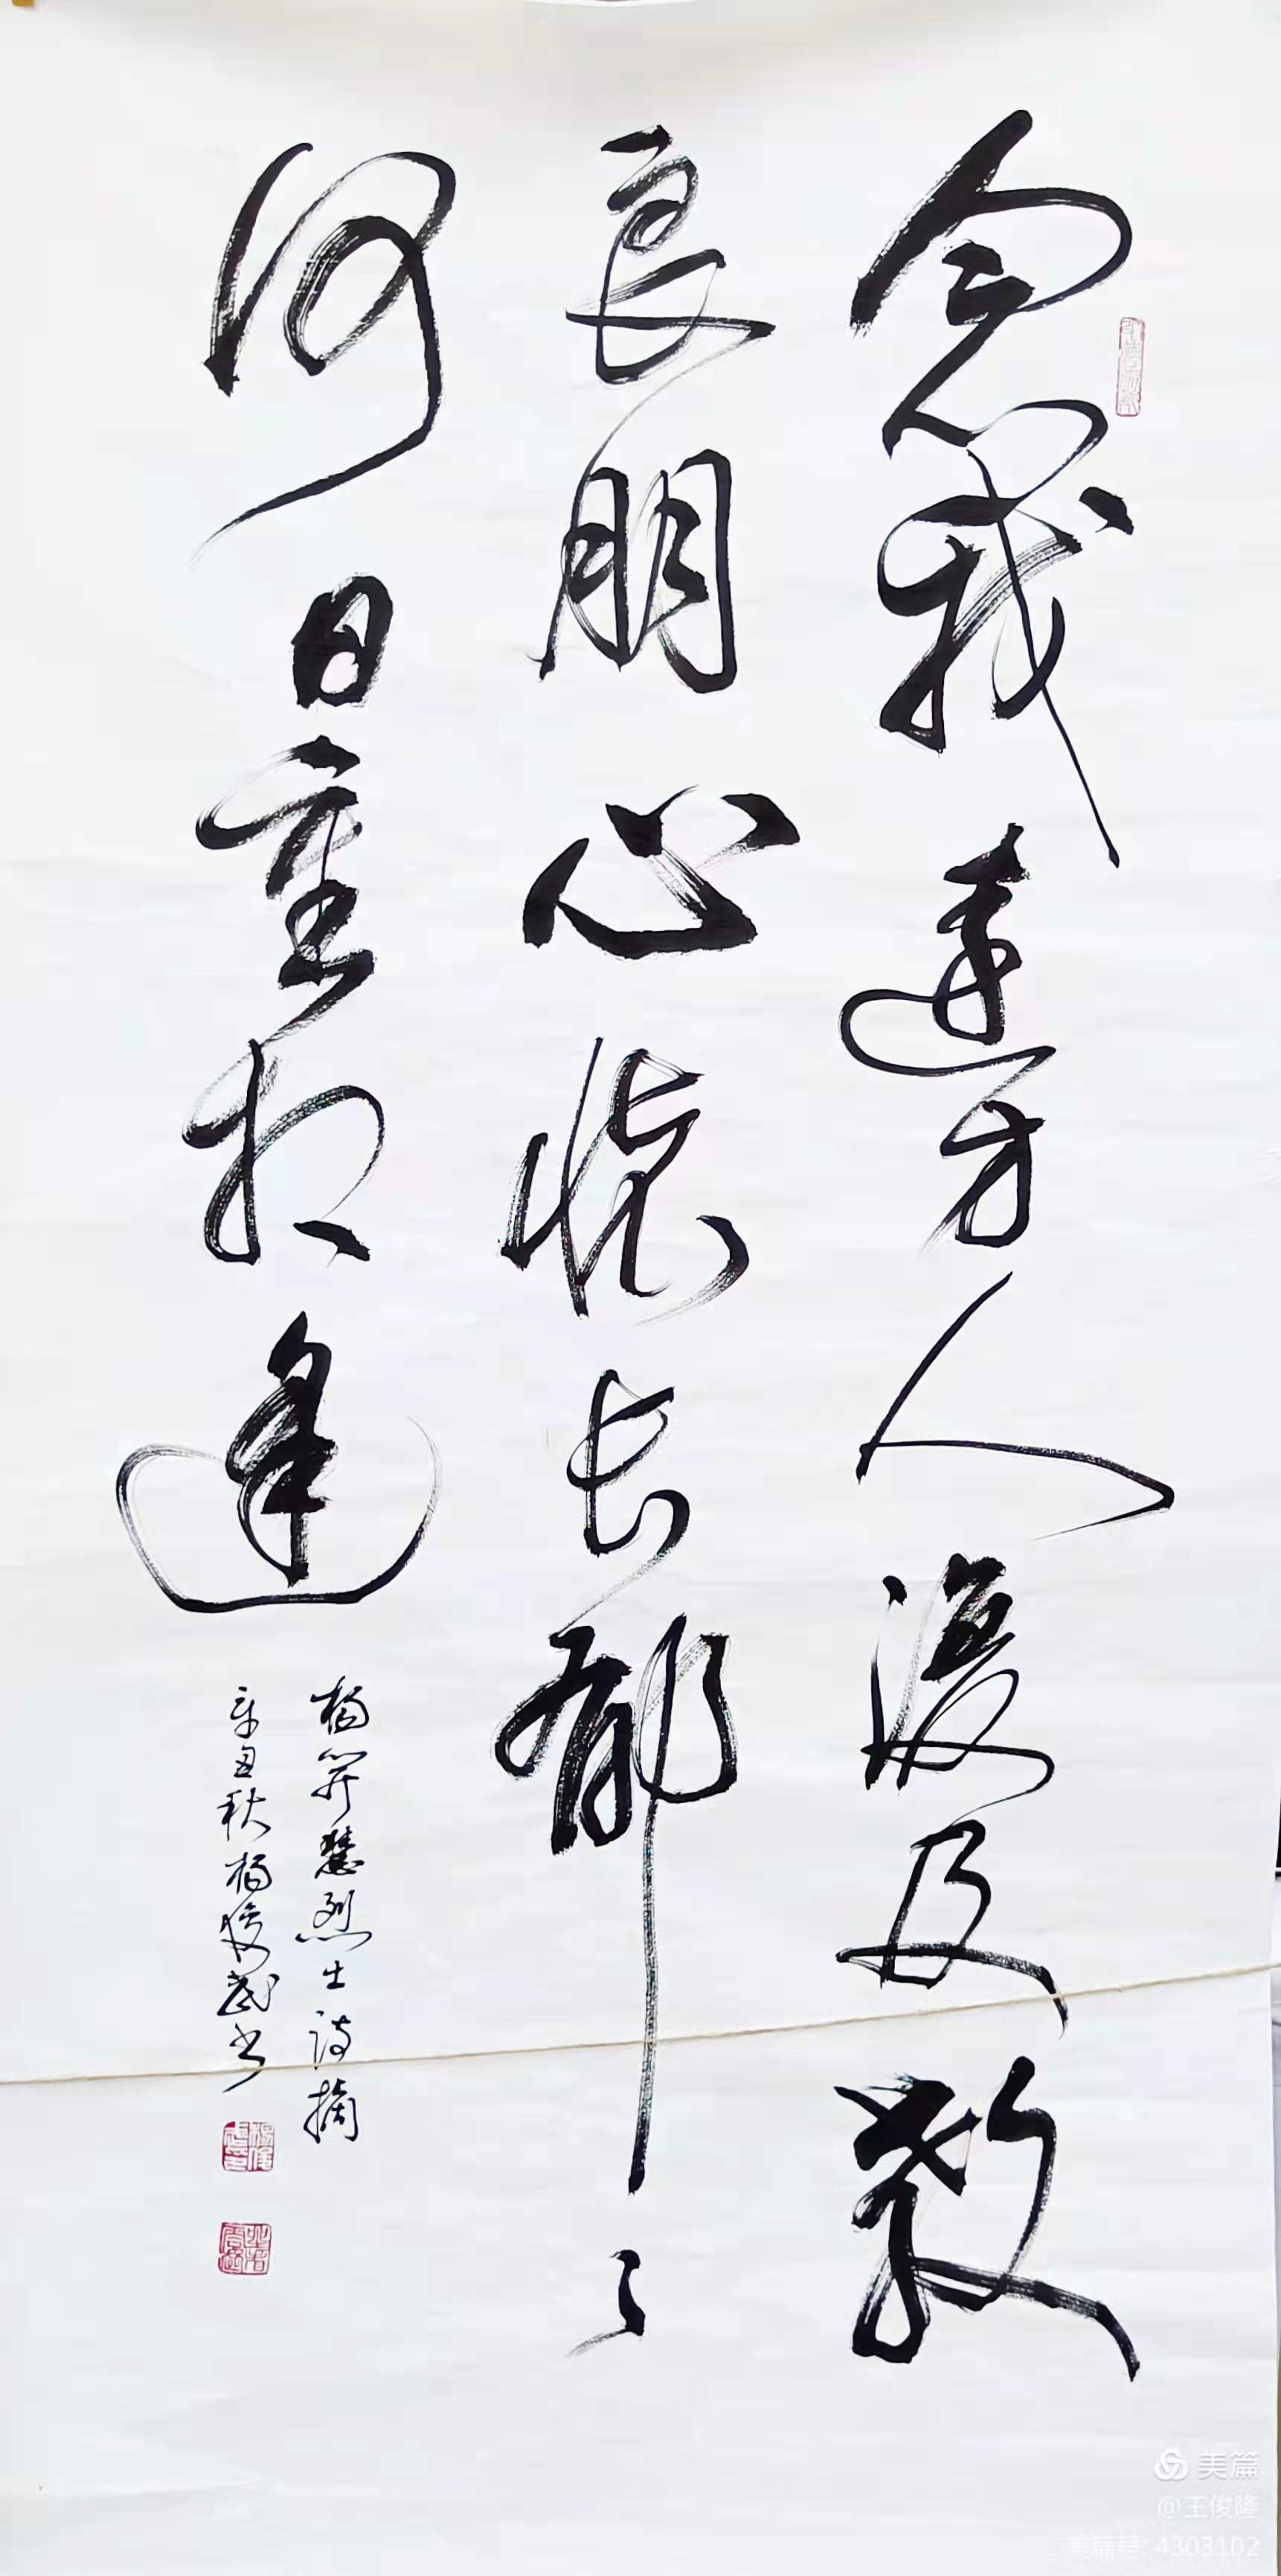 念我远方人复及教
良朋心怀长郁々
何日重相逢
杨开慧烈士诗摘
辛丑秋杨俊武书
美篇
@王俊隆
美篇号: 4303102